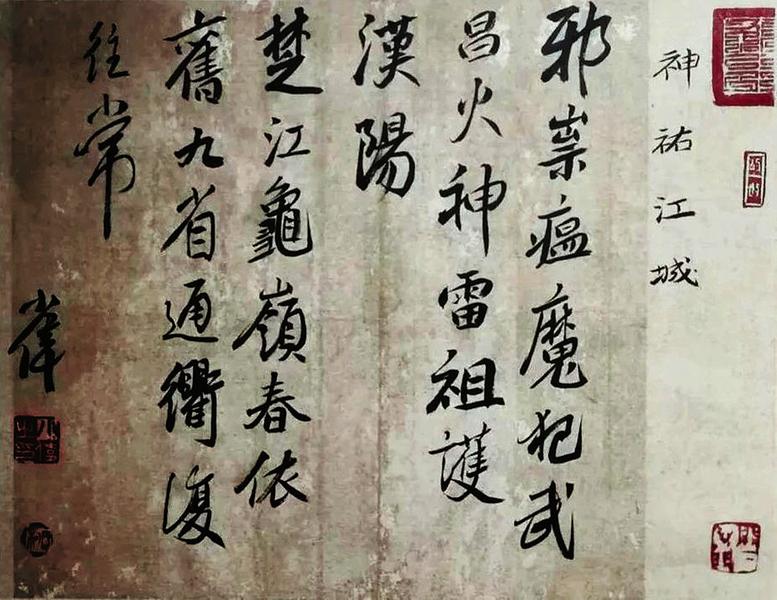 神祐江城
邪祟瘟魔犯武
昌火神雷祖護
漢陽
楚江龜嶺春依
舊九省通衢復
往常